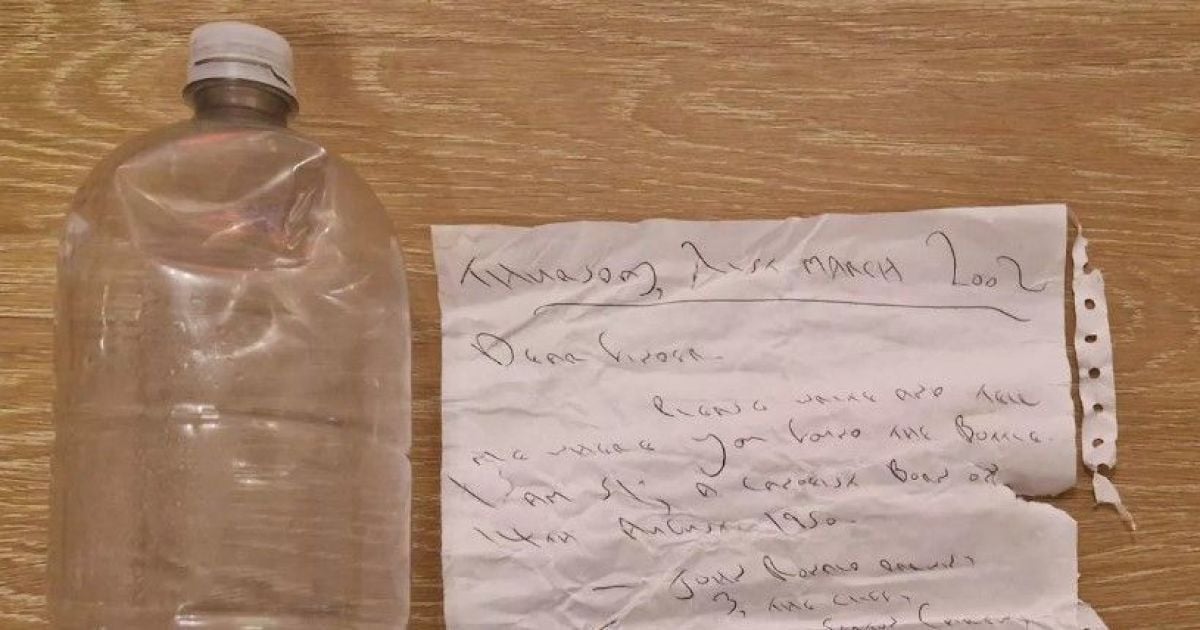 THURSDAY, 21ST MARCH 2002
DEAR FINDER.
PLEASE WRITE AND TELL
ME WHERE YOU FOUND THE BOTTLE.
I AM 51, A BORN ON
14TH AUGUST 1950.
JOHN
3, THE CLIFF,
SEATON